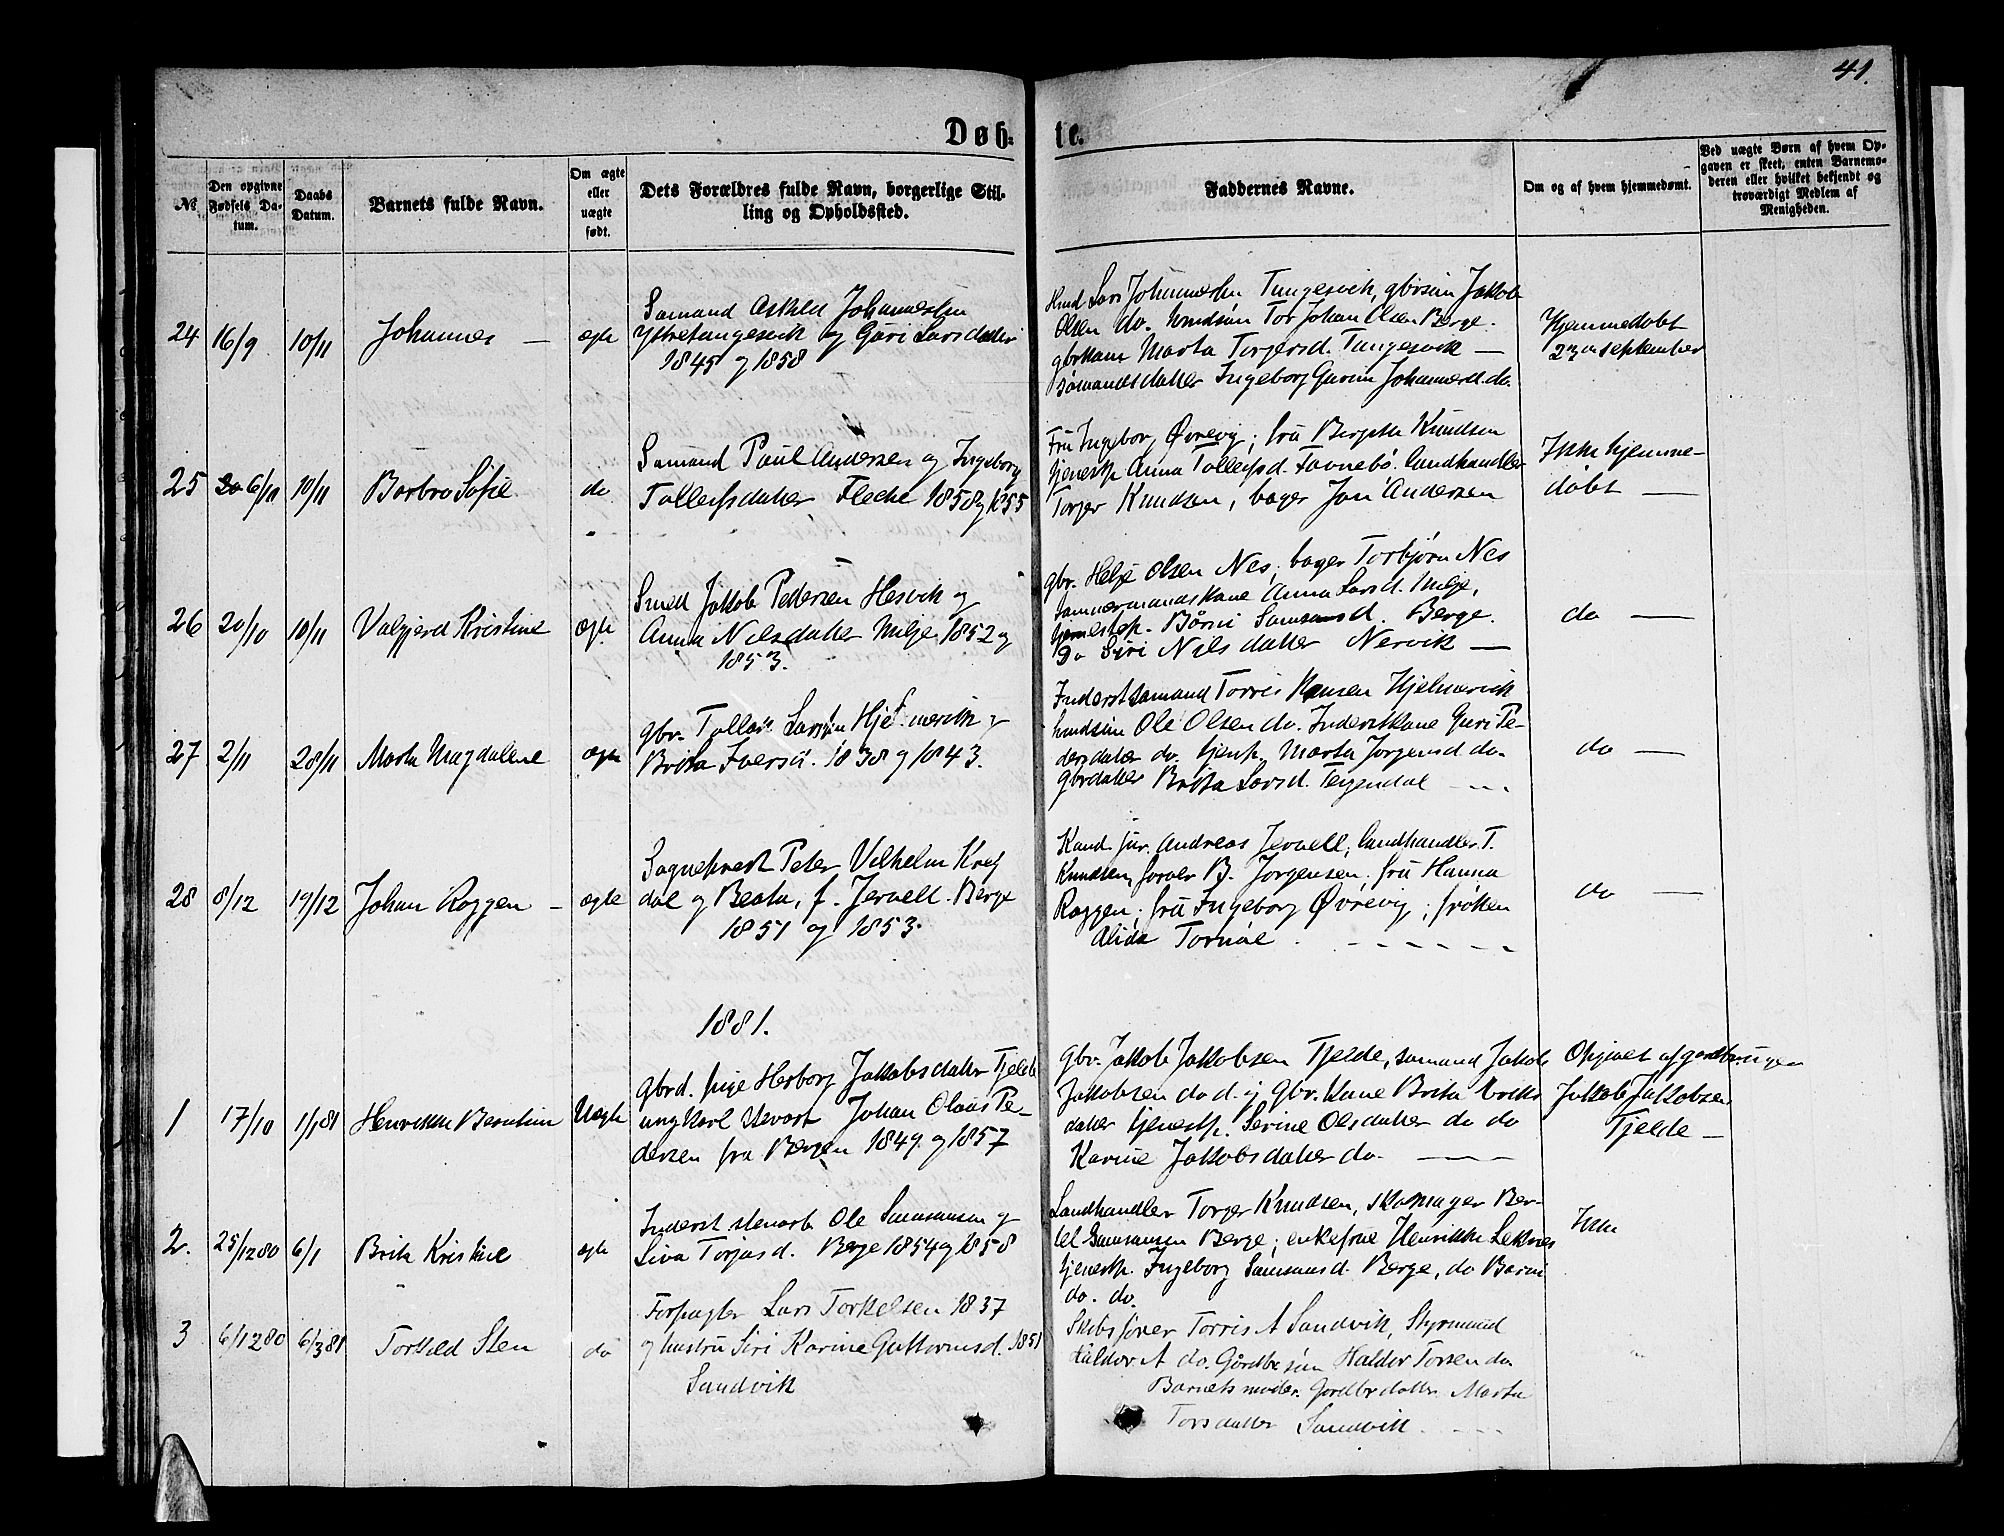 41.
Døb-
te.
№
Den opgivne
Fødsels Da-
tum.
Daabs
Datum.
Barnets fulde Navn.
Om ægte
eller
uægte
født.
Dets Forældres fulde Navn, borgerlige Stil-
ling og Opholdssted.
Faddernes Navne.
Om og af hvem hjemmedøbt.
Ved uægte Børn af hvem Op-
gaven er skeet, enten Barnemo-
deren eller hvilket bekjendt og
troværdigt Medlem af
Menigheden.
24
16/9
10/11
Johannes —
ægte
Sømand Johannessen
og Guri Larsdatter
1845 og 1858
Lars Johannessen Tungesvik, gbrsøn Jakob
Olsen do. Tor Johan Olsen Berge.
Marta Torgersd. Tungesvik —
sømandsdatter Ingeborg Johannesd. do.
Hjemmedøbt
september
25
6/11
10/11
Barbro Sofie
do
Sømand Paul Andersen og Ingeborg
Tolleifsdatter Flecke 1858 og 1855
Fru Ingeborg Øvrevig; fru Bergitte Knudsen
tjenestp. Anna Tolleifsd. Landhandler
Torger Knudsen, bager Jon Andersen
Ikke hjemme-
døbt —
26
20/10
10/11
Valgjerd Kristine
ægte
Smed Jakob Pedersen Hesvik og
Anna Nilsdatter Milje 1852 og
1853.
gbr. Helje Olsen Nes, bager Torbjørn Nes
Anna Larsd. Milje,
tjenestep. Samsonsd. Berge.
Do Siri Nilsdatter Nervik —
do —
27
2/11
28/11
Marta Magdalene
ægte
gbr. Larssøn og
Brita Iversd. 1838 og 1843.
Inderst sømand Torris Hansen Hjelmervik
Ole Olsen do. Inderstkone Guri Pe-
dersdatter do. tjenp. Marta Jorgensd do.
gbrdatter Brita Larsd. Teigendal
do —
28
8/12
19/12
Johan Roggen —
ægte
Sogneprest Peter Vilhelm Kref
dal og Beata, f. Jervell. Berge
1851 og 1853.
Kand jur. Andreas Jervell, landhandler T.
Knudsen, B. Jorgensen, fru Hanna
Roggen; fru Ingeborg Øvrevig; frøken
Alida Tornøe.
do —
1881.
1
17/10
1/1 81
Henrikke Berntine
Uægte
gbrd. pige Herborg Jakobsdatter Tjelde
ungkarl stuert Johan Olaus Pe-
dersen fra Bergen 1849 og 1857
gbr. Jakob Jakobsen Tjelde, sømand Jakob
Jakobsen do gbr. kone Brita
datter tjenestp. Serine Olsdatter do do
Karine Jakobsdatter do. —
Opgivet af gardbrugen
Jakob Jakobsen
Tjelde —
2.
25/12 80
6/1
Brita Kristine
ægte
Inderst stenarb Ole Samsonsen og
Siva Torjusd. Berge 1854 og 1858
Landhandler Torger Knudsen, skomager Ber-
tel Samsonsen Berge; enkefrue Henrikke Leknes
tjenestp. Ingeborg Samsonsd. Berge, do
do. do.
Ikke
3
6/12 80
6/3 81
Torkild Sten
do
Forpagter Lars Torkelsen 1837
og hustru Siri Karine Guttormsd. 1851
Sandvik
Skibsfører Torris A Sandvik, Styrmand
Haldor A do. Gårdbr søn Haldor Torsen do.
Barnets moder. Gardbrdatter Marta
Torsdatter Sandvik